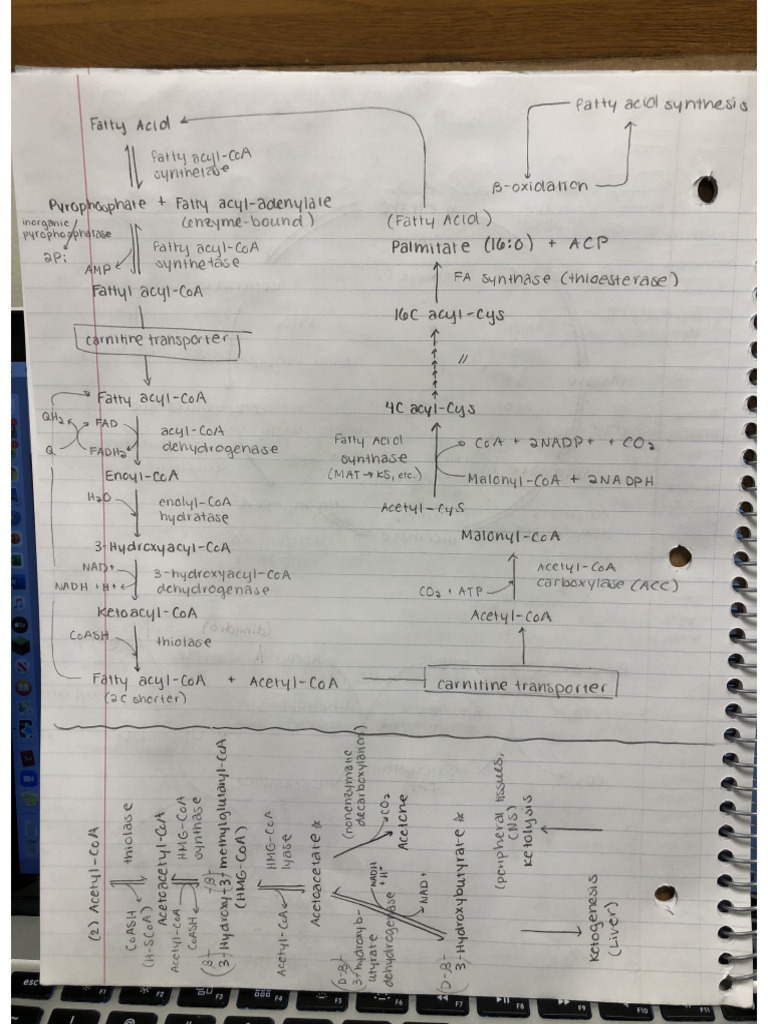 Fatty Acid
fatty acyl-CoA
synthetase
Pyrophosphate + Fatty acyl-adenylate
(enzyme-bound)
inorganic
pyrophosphatase
2Pi
AMP
fatty acyl-CoA
synthetase
Fattyl acyl-CoA
carnitine transporter
Fatty acyl-CoA
QH2
FAD
Q
FADH2
acyl-CoA
dehydrogenase
Enoyl-CoA
H2O
enolyl-CoA
hydratase
3-Hydroxyacyl-CoA
NAD+
NADH + H+
3-hydroxyacyl-CoA
dehydrogenase
Ketoacyl-CoA
CoASH
thiolase
Fatty acyl-CoA + Acetyl-CoA
(2C shorter)
fatty acid synthesis
β-oxidation
(Fatty Acid)
Palmitate (16:0) + ACP
FA synthase (thioesterase)
16C acyl-Cys
"
4C acyl-Cys
Fatty Acid
synthase
(MAT → KS, etc.)
CoA + 2NADP+ + CO2
Malonyl-CoA + 2NADPH
Acetyl-Cys
Malonyl-CoA
CO2 + ATP
Acetyl-CoA
carboxylase (ACC)
Acetyl-CoA
carnitine transporter
(2) Acetyl-CoA
CoASH
(H-SCoA)
thiolase
Acetoacetyl-CoA
Acetyl-CoA
CoASH
HMG-CoA
synthase
(β-
3-Hydroxy-3-methylglutaryl-CoA
(HMG-CoA)
Acetyl-CoA
HMG-CoA
lyase
Acetoacetate *
(nonenzymatic
decarboxylation)
CO2
Acetone
(D-β-
3-hydroxyb-
utyrate
dehydrogenase
NADH
+ H+
NAD+
(D-β-
3-Hydroxybutyrate *
(peripheral tissues,
CNS)
Ketolysis
Ketogenesis
(Liver)
esc
F1
F2
F3
F4
F5
F6
F7
F8
F9
F10
F11